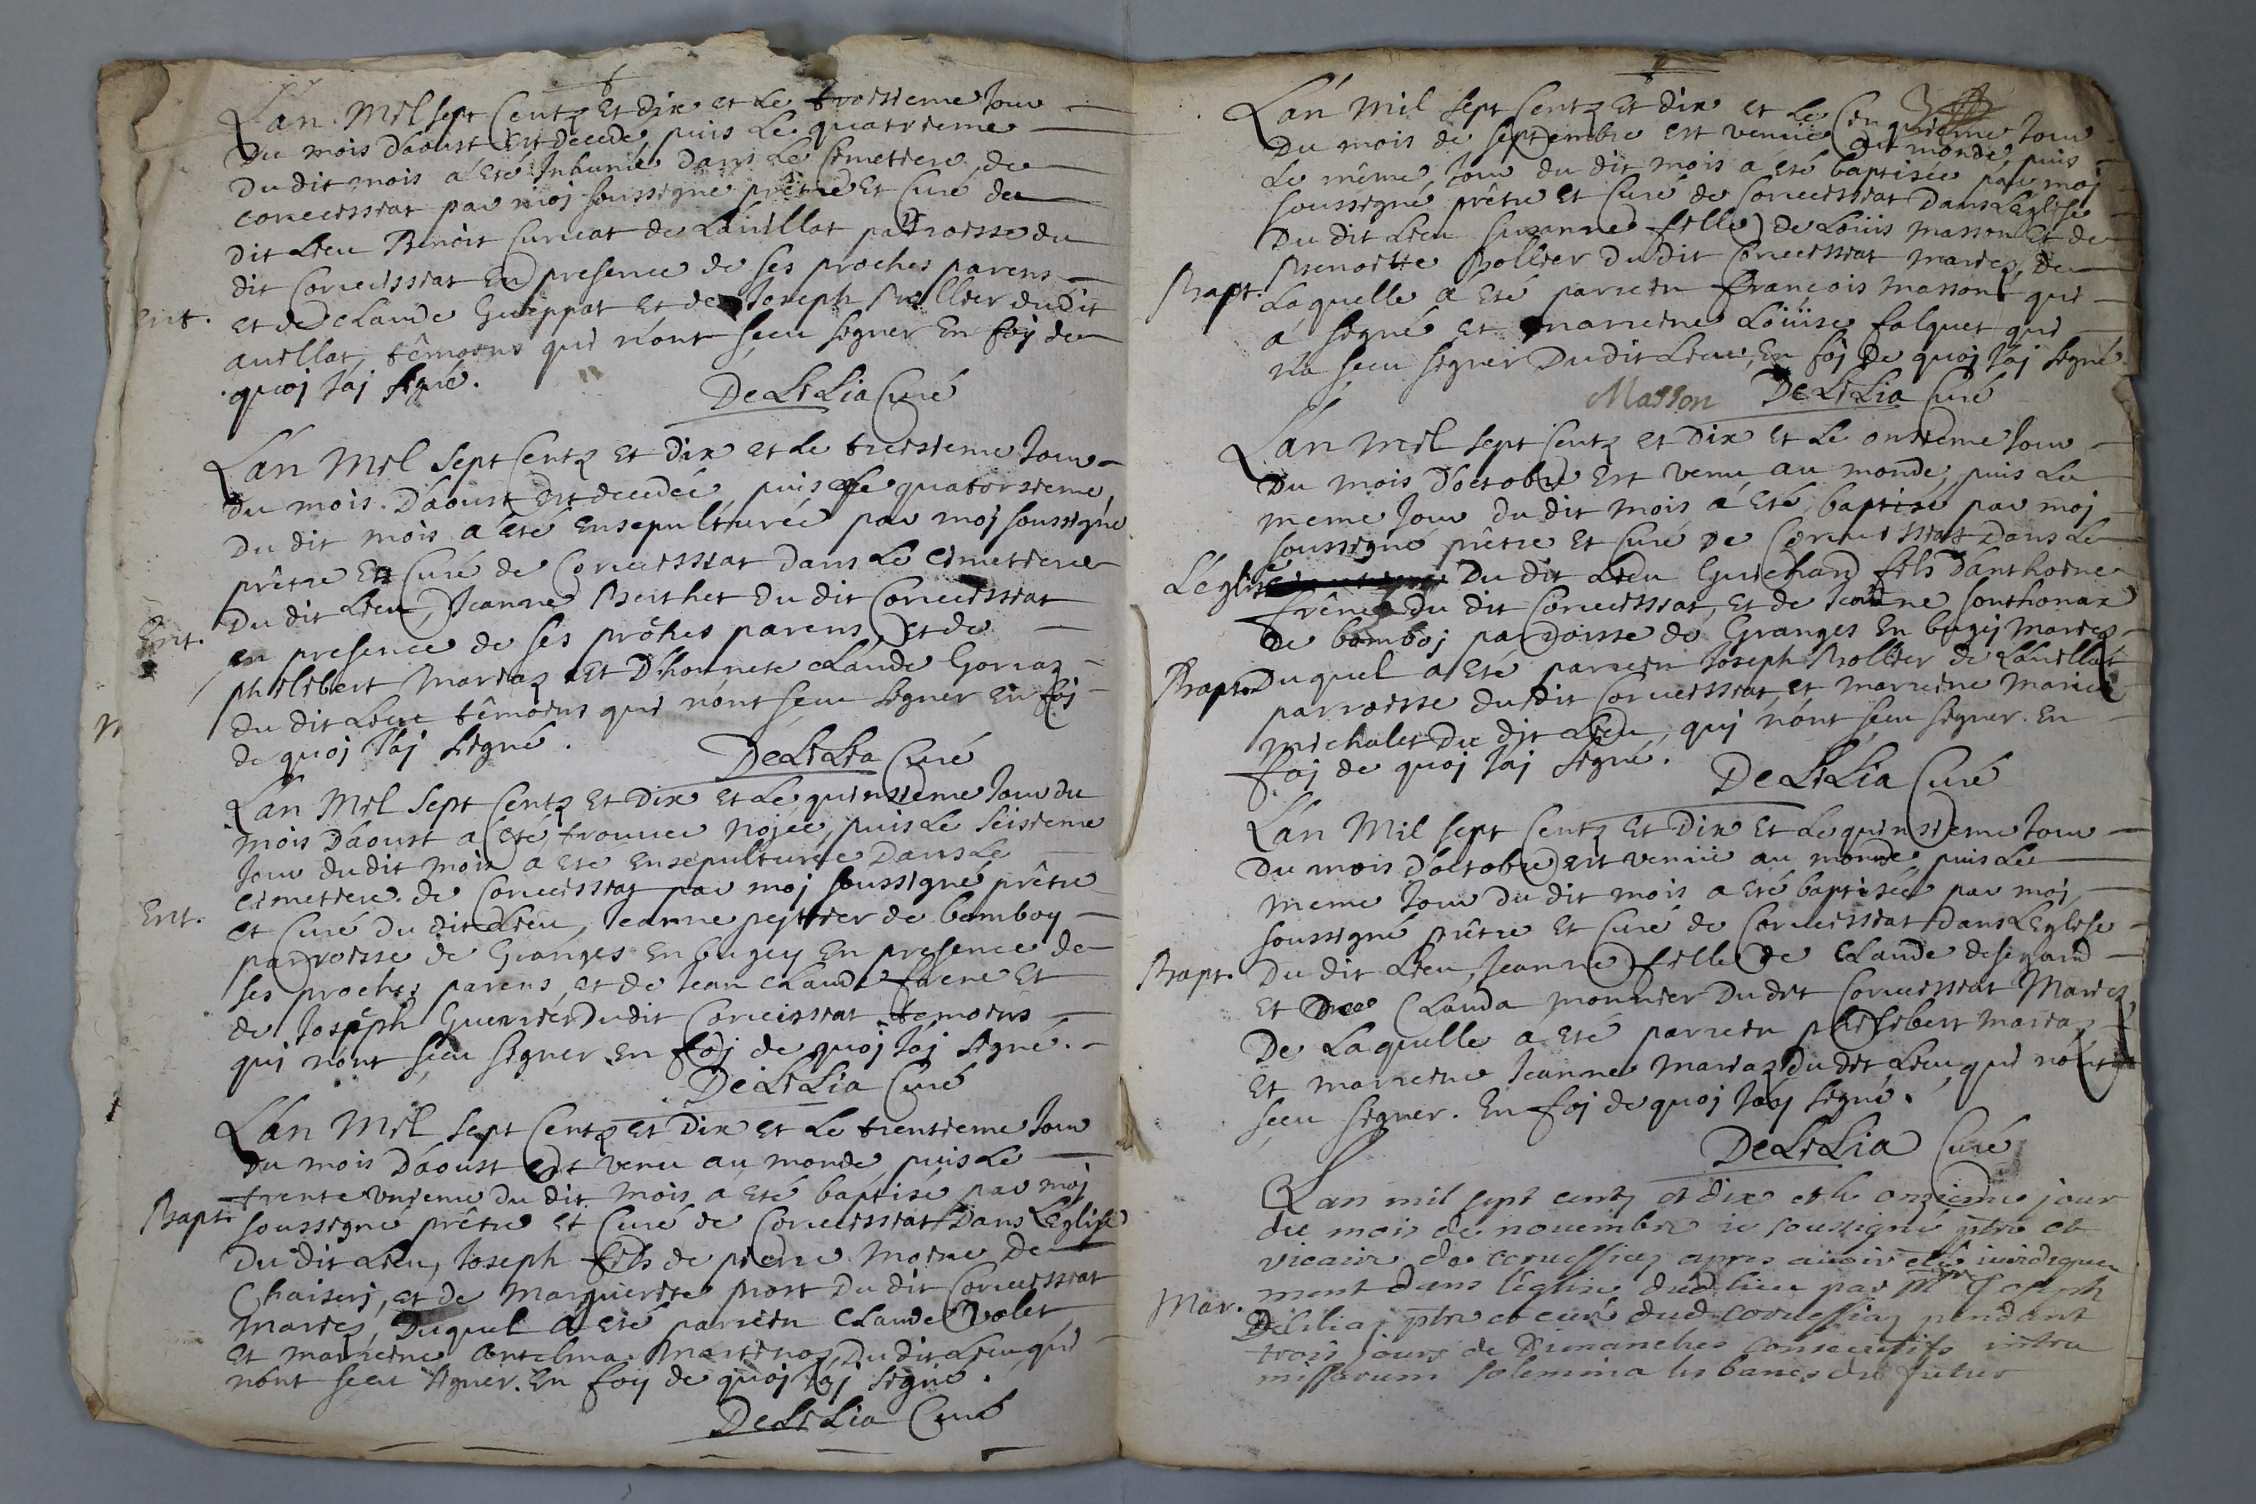 L'an Mil sept Centz Et Dix et Le troisieme Jour
Du mois D'aoust Est Decedé, puis Le quatrieme
Du dit mois a èté Inhumé Dans Le Cimetiere de
Corveissiat par moj soussigné prêtre Et Curé du
Dit Lieu Benoit Curvat de Lavillat parroisse du
dit Corveissiat En presence de ses proches parens
Ent.
et de Claude Guippat Et de Joseph Rollier du dit
avillat, têmoins qui n'ont sceu signer En foy de
quoj J'aj signé.
DeLiLia Curé
L'an Mil sept Centz Et Dix et Le treisieme Jour
du mois D'aoust Est decedée, puis Le quatorsieme
Du dit mois a èté Ensepulturée par moj soussigné
prêtre Et Curé de Corveissiat Dans Le Cimetiere
Du dit Lieu, Jeanne Berthet Du dit Corveissiat
Ent.
en presence de ses prôhes parens, et de
philibert Mariaz Et D'honnete Claude Gorraz
du dit Lieu têmoins qui n'ont sceu signer En foj
de quoj J'aj signé.
DeLiLia Curé
L'an Mil Sept Centz Et Dix Et Le quinsieme Jour du
mois D'aoust a èté trouvee Nojée, puis Le seisieme
Jour du dit Mois a èté Ensepulturée Dans Le
cimetiere de Corveissiat par moj soussigné prêtre
Ent.
et Curé Du dit Lieu, Jeanne pejtier de bomboy
parroisse de Granges En bugey En presence de
ses proches parens, et de Jean Claude frene Et
de Joseph Guerrier Du dit Corveissiat têmoins
qui n'ont sceu signer En foj de quoj J'aj signé.
DeLiLia Curé
L'an Mil sept Centz et Dix et Le trentieme Jour
Du mois D'aoust Est venu au monde, puis Le
trente unieme Du dit mois a èté baptisé par moj
Bapt.
soussigné prêtre et Curé de Corveissiat Dans L'Eglise
Du dit Lieu, Joseph fils de pierre Moine De
Chaiserj, et de Marguerite Prost Du dit Corveissiat
Mariez, Duquel a èté parrein Claude Volet
et marreine Antelma Martinaz, Du dit Lieu qui
n'ont sceu signer. En foy de quoj J'aj signé.
DeLiLia Curé
L'an Mil sept Centz Et Dix et Le Cinquieme Jour
Du mois de septembre est venüe au monde, puis
Le même Jour du dit mois a èté baptisée par moj
soussigné prêtre et Curé de Corveissiat Dans L'Eglise
Du dit Lieu Susanne fille De Loüis Masson Et de
Benoitte Rollier Du dit Corveissiat Mariez, De
Bapt.
Laquelle a èté parrein François Masson qui
a signé et marreine Loüise falquet qui
n'a sceu signer Du dit Lieu, En foj De quoj J'aj signé
Masson DeLiLia Curé
L'an Mil sept Centz et Dix Et Le onsieme Jour
Du mois D'octobre Est venu au monde, puis Le
meme Jour du dit mois a èté baptisé par moj
soussigné prêtre et Curé de Corveissiat Dans Le
L'église Du dit Lieu Guichard fils D'anthoine
frêne Du dit Corveissiat, et de Jeanne Sonthonax
de bomboj parroisse de Granges En bugej Mariez
Bapt.
Duquel a èté parrein Joseph Rollier de Lavillat
parroisse du dit Corveissiat, et marreine Marie
michalet Du dit Lieu, qui n'ont sceu signer. En
foj de quoj J'aj signé.
DeLiLia Curé
L'an Mil sept Centz Et Dix Et Le quinsieme Jour
Du mois D'octobre est venüe au monde, puis Le
meme Jour du dit mois a èté baptisée par moj
soussigné prêtre et Curé de Corveissiat Dans L'Eglise
Bapt.
Du dit Lieu, Jeanne fille De Claude desenand
Et De Clauda Monnier Du dit Corveissiat Mariez
De Laquelle a èté parrein philibert Mariaz
Et marreine Jeanne Mariaz Du dit Lieu, qui n'ont
sceu signer. En foj de quoj J'aj signé.
DeLiLia Curé
L'an mil sept centz et dix et le onzieme jour
du mois de novembre ie soussigné ptre et
vicaire de corvessiaz apres avoir eté iuridique
ment dans l'eglise dud. lieu par Mre Joseph
Mar.
Delilia ptre et curé dud. corvessiaz pendant
trois jours de Dimanches consecutifs intra
missarum solemnia les bancs du futur